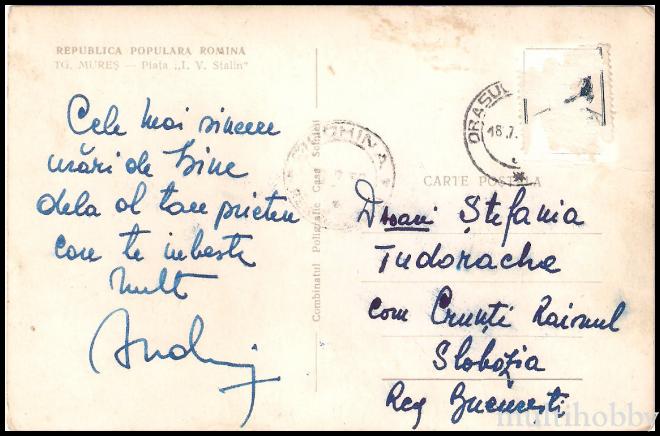 REPUBLICA POPULARA ROMINA
TG. MUREȘ — Piața „I. V. Stalin"
Cele mai sincere
urări de bine
dela al tau prieten
care te iubeste
mult
Andrei
Combinatul Poligrafic Casa Scînteii
ORAȘUL
18.7.
CARTE POȘTALA
Ștefania
Tudorache
com Crunți Raionul
Slobozia
Reg București
multihobby